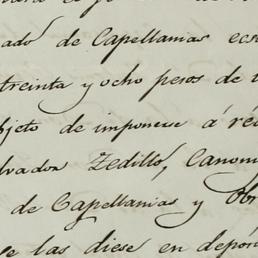 ado de Capellanias ecs
treinta y ocho pesos de
bjeto de imponerse á ré
lvador Zedillo, Canon
de Capellanias y Ob
se las diese en depó